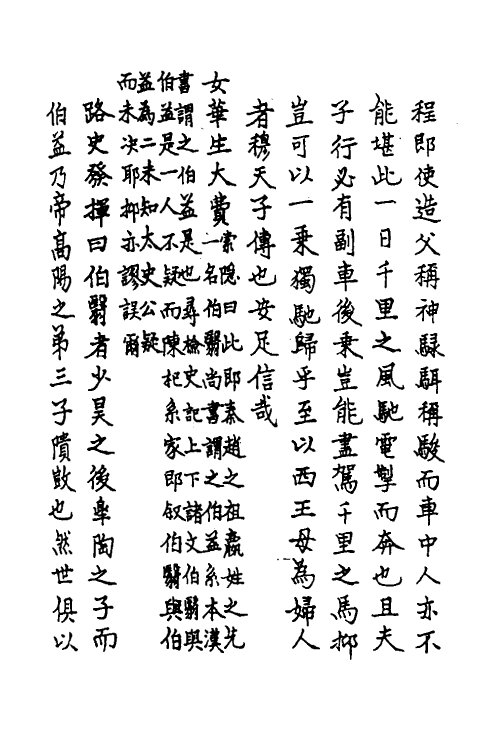 程即使造父稱神騄駬稱駿而車中人亦不
能堪此一日千里之風馳電掣而奔也且夫
子行必有副車後乗豈能盡駕千里之馬抑
豈可以一乗獨馳歸乎至以西王母為婦人
者穆天子傳也安足信哉
女華生大費
索隱曰此即秦趙之祖嬴姓之先
一名伯翳尚書謂之伯益系本漢
書謂之伯益是也尋檢史記上下諸文伯翳與
伯益是一人不疑而陳杞系家即叙伯翳與伯
益為二未知太史公疑
而未決耶抑亦謬誤爾
路史發揮曰伯翳者少昊之後臯陶之子而
伯益乃帝高陽之第三子隤敳也然世俱以